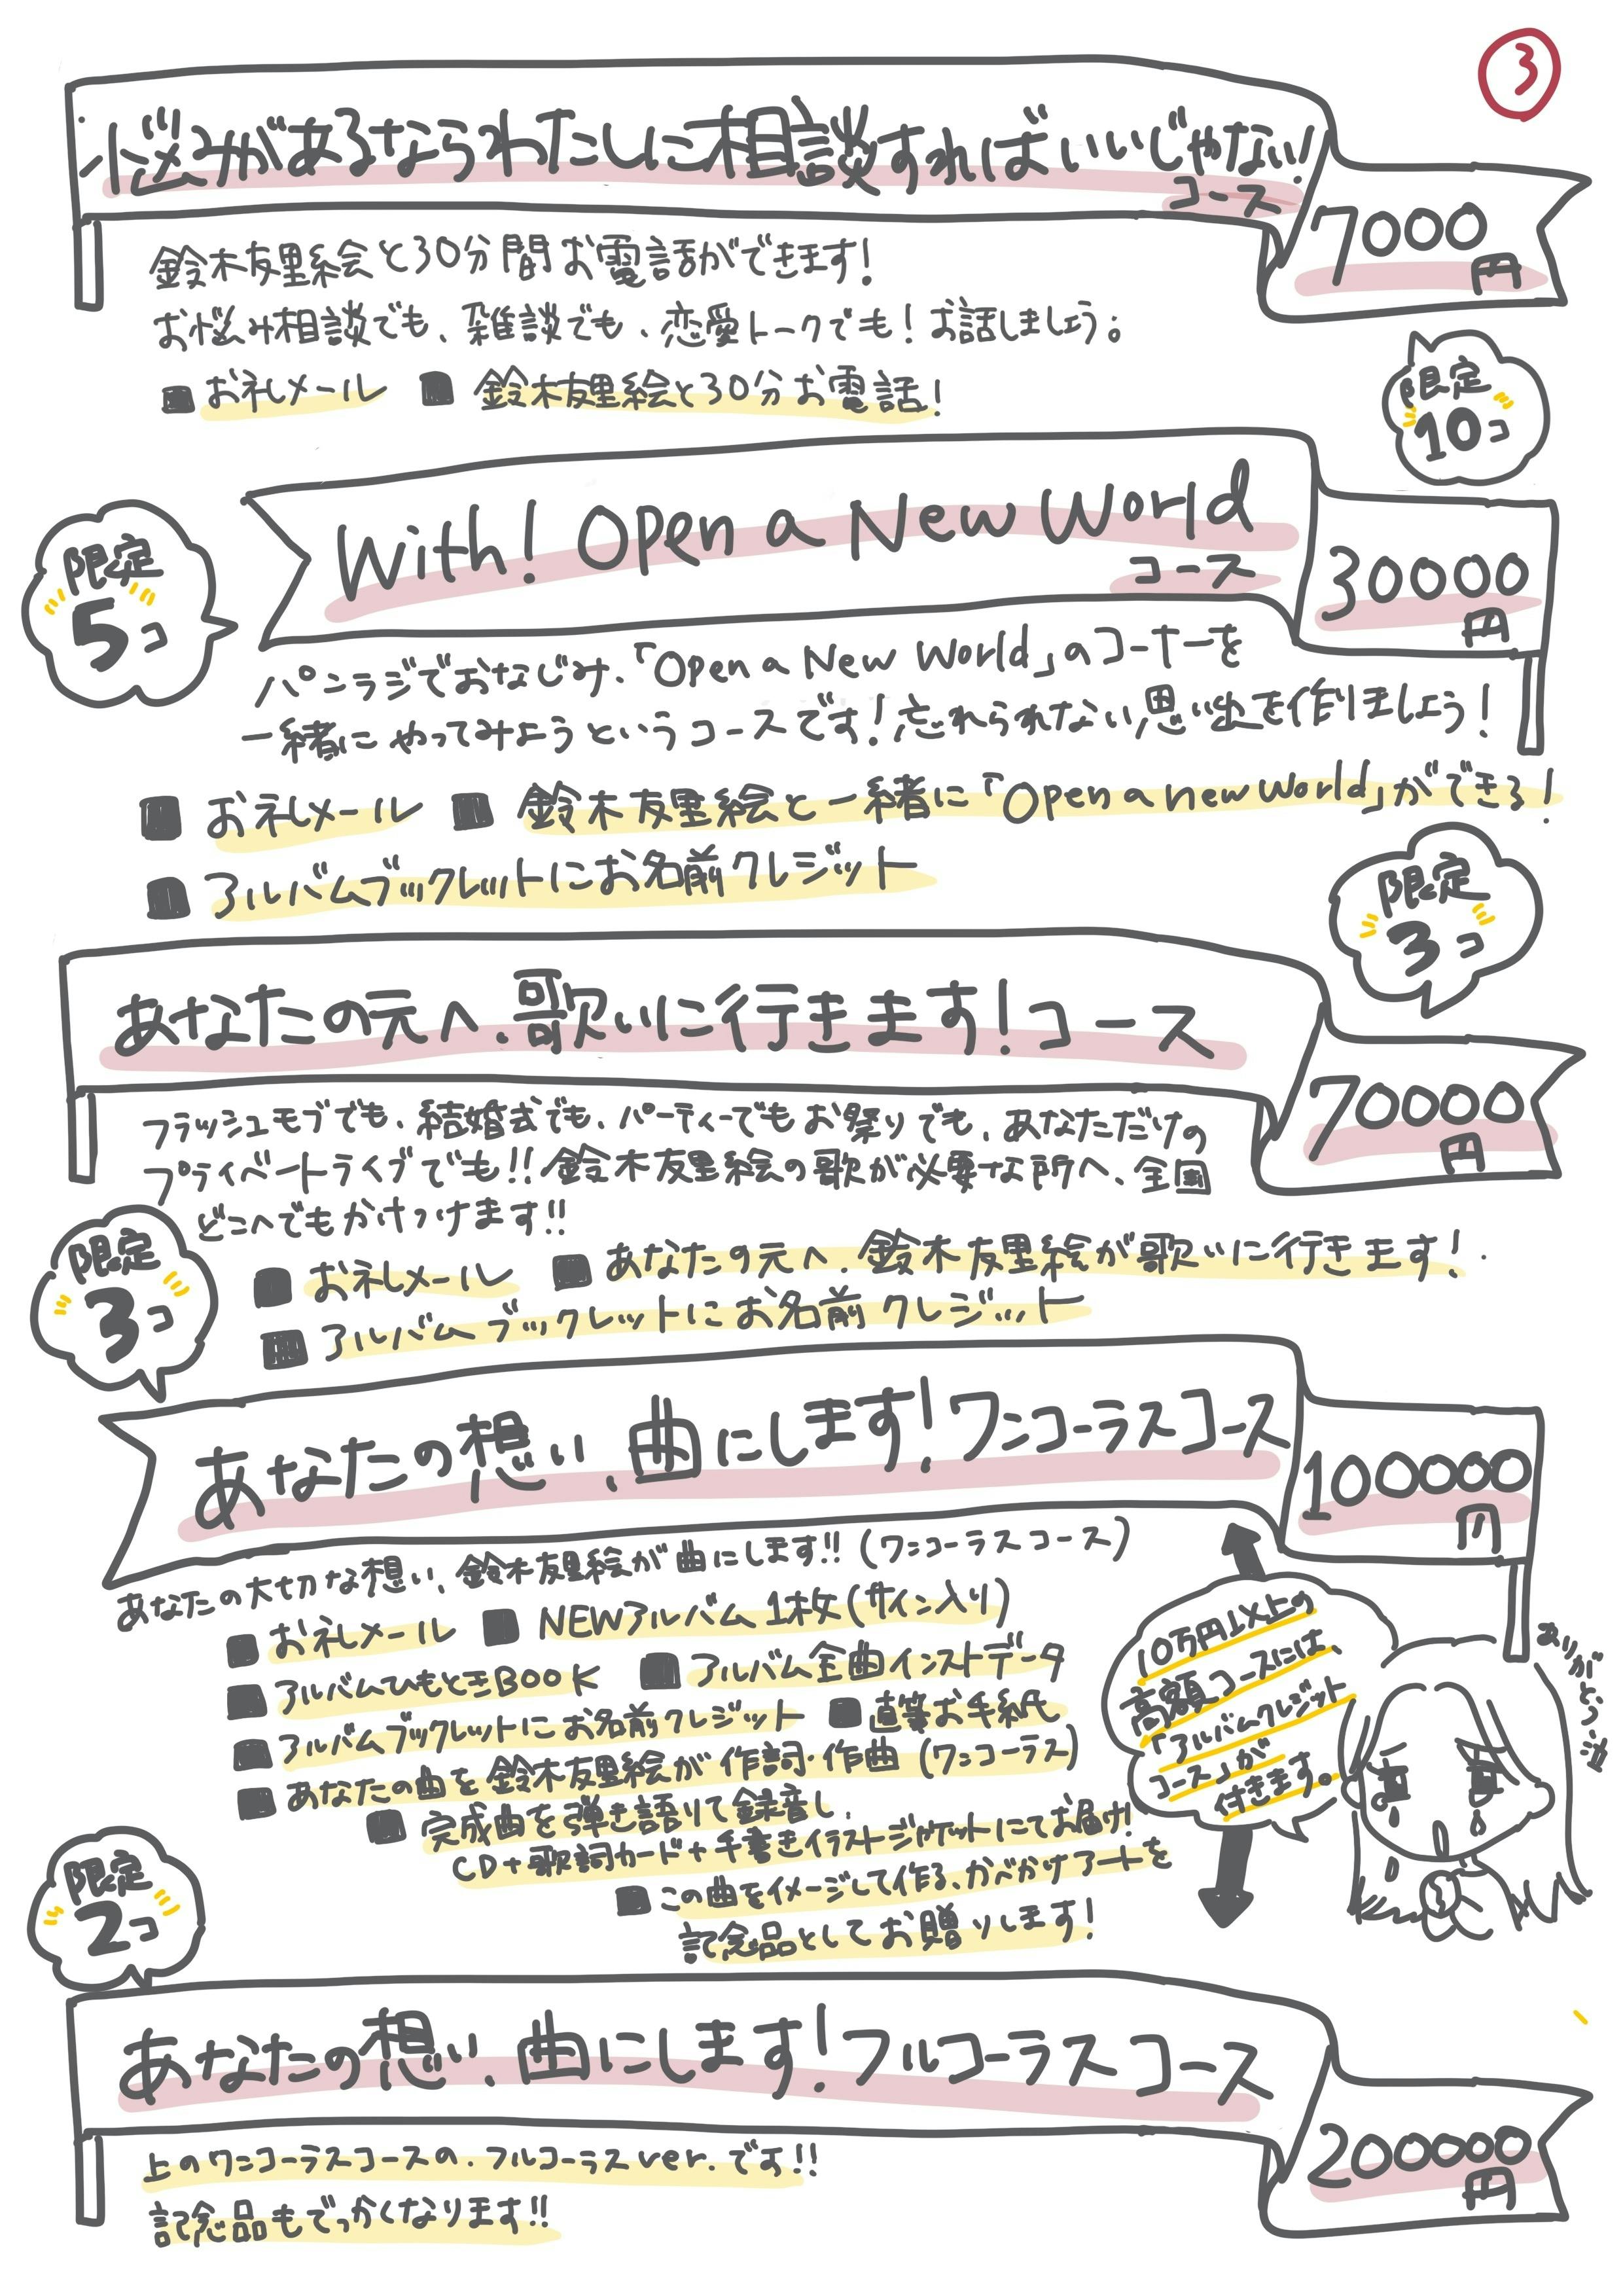 ③
悩みがあるならわたしに相談すればいいじゃない!
コース
7000
円
鈴木友里絵と30分間お電話ができます!
お悩み相談でも、雑談でも、恋愛トークでも!お話しましょう。
■お礼メール ■鈴木友里絵と30分お電話!
限定
10コ
With! Open a New World
コース
30000
円
限定
5コ
パンラジでおなじみ、「Open a New World」のコーナーを
一緒にやってみようというコースです!忘れられない思い出を作りましょう!
■お礼メール ■鈴木友里絵と一緒に「Open a new world」ができる!
■アルバムブックレットにお名前クレジット
限定
3コ
あなたの元へ、歌いに行きます!コース
70000
円
フラッシュモブでも、結婚式でも、パーティーでもお祭りでも、あなただけの
プライベートライブでも!!鈴木友里絵の歌が必要な所へ、全国
どこへでもかけつけます!!
■お礼メール ■あなたの元へ、鈴木友里絵が歌いに行きます!
■アルバムブックレットにお名前クレジット
限定
3コ
あなたの想い、曲にします!ワンコーラスコース
100000
円
あなたの大切な想い、鈴木友里絵が曲にします!!(ワンコーラスコース)
■お礼メール ■NEWアルバム1枚(サイン入り)
■アルバムひもときBOOK ■アルバム全曲インストデータ
■アルバムブックレットにお名前クレジット ■直筆お手紙
■あなたの曲を鈴木友里絵が作詞・作曲(ワンコーラス)
■完成曲を弾き語りて録音し、
CD+歌詞カード+手書きイラストジャケットにてお届け!
■この曲をイメージして作る、かべかけアートを
記念品としてお贈りします!
10万円以上の
高額コースには、
「アルバムクレジット
コース」が
付きます。
ありがとう泣
限定
2コ
あなたの想い、曲にします!フルコーラスコース
200000
円
上のワンコーラスコースの、フルコーラスver.です!!
記念品もでっかくなります!!